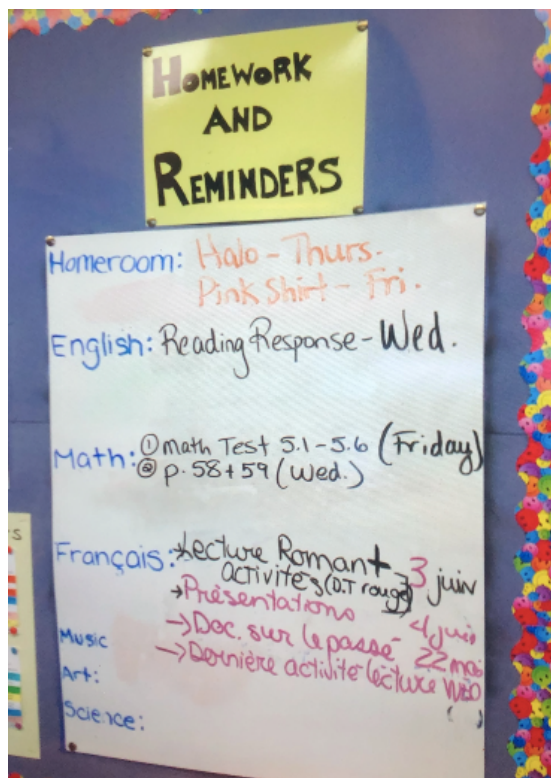 HOMEWORK
AND
REMINDERS
Homeroom: Halo - Thurs.
Pink Shirt - Fri.
English: Reading Response - Wed.
Math: ① math Test 5.1-5.6 (Friday)
② p. 58+59 (Wed.)
Français: → Lecture Roman + 3 juin
activités (D.T rouge)
→ Présentations → 4 juin
→ Doc. sur le passé 22 mai
→ Dernière activité lecture WED
( )
Music
Art:
Science: